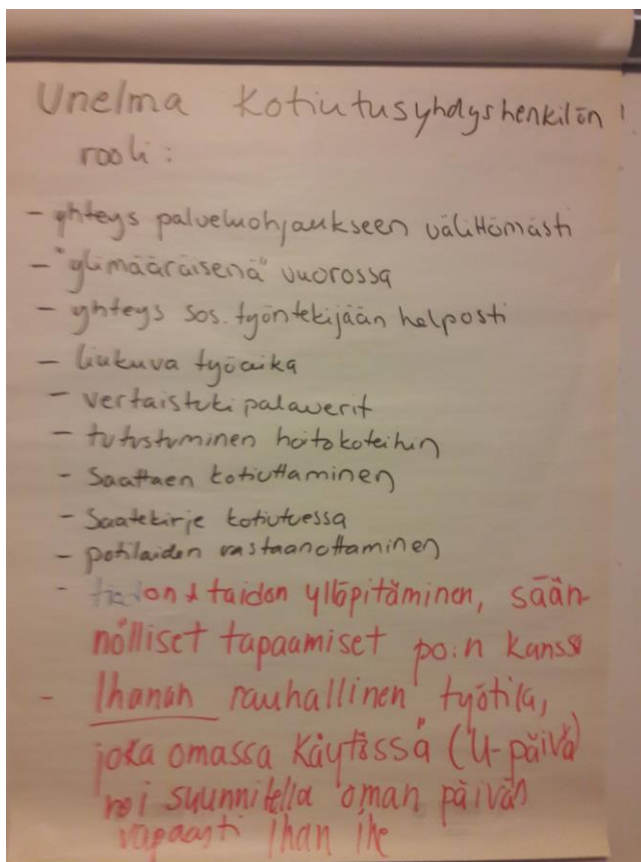 Unelma kotiutusyhdyshenkilön!
rooli:
- yhteys palveluohjaukseen välittömästi
- "ylimääräisenä" vuorossa
- yhteys sos. työntekijään helposti
- liukuva työaika
- vertaistuki palaverit
- tutustuminen hoitokoteihin
- Saattaen kotiuttaminen
- Saatekirje kotiutuessa
- potilaiden vastaanottaminen
- tiedon & taidon ylläpitäminen, sään-
nölliset tapaamiset po:n kanssa
- Ihanan rauhallinen työtila,
joka omassa käytössä (U-päivä)
voi suunnitella oman päivän
vapaasti ihan itse